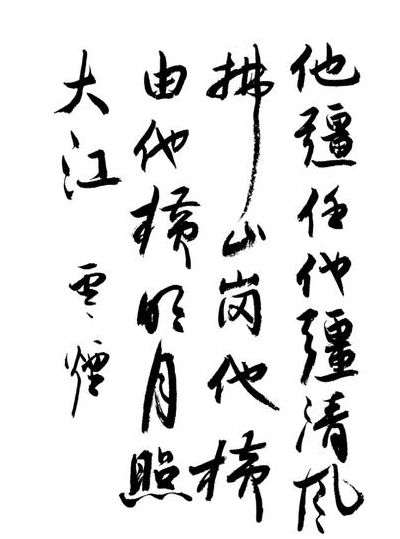 他疆任他疆清风
拂山岗他横
由他横明月照
大江
雲煙